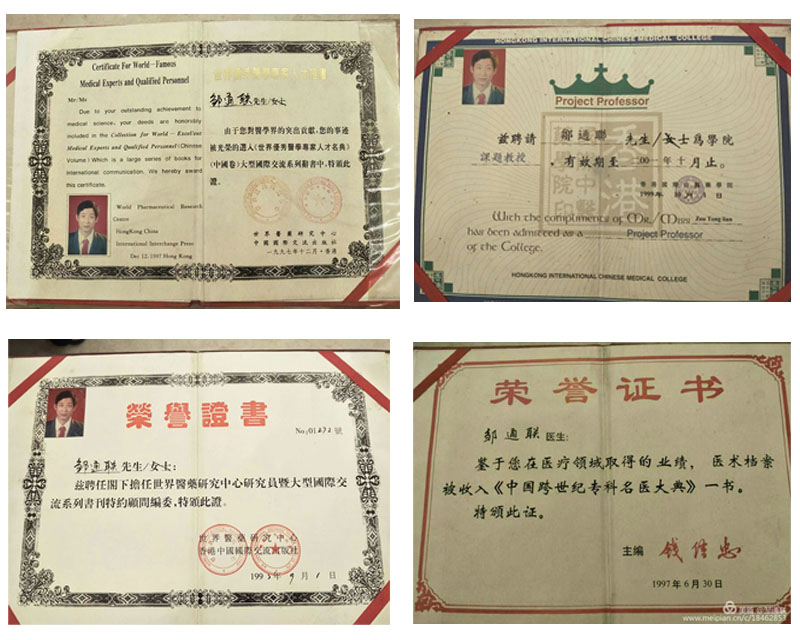 Certificate For World—Famous
Medical Experts and Qualified Personnel
Mr/Ms
Due to your outstanding achievement to
medical science, your deeds are honorably
included in the Collection for World—Excellent
Medical Experts and Qualified Personnel (Chinese
Volume) Which is a large series of books for
International communication. We hereby award
this certificate.
World Pharmaceutical Research
Centre
HongKong China
International Interchange Press
Dec 12, 1997 Hong Kong
邹通联先生/女士
由于您對醫學界的突出貢獻,您的事迹
被光榮的選入《世界優秀醫學專家人才名典》
(中國卷)大型國際交流系列辭書中,特頒此
證。
世界醫藥研究中心
中國國際交流出版社
一九九七年十二月·香港
HONGKONG INTERNATIONAL CHINESE MEDICAL COLLEGE
Project Professor
兹聘請 鄒通聯 先生/女士爲學院
課題教授 。有效期至 年十月止。
香港國際中醫藥學院
1998年
With the compliments of MR./MISS Zou Tong lian
has been admitted as a Project Professor
of the College.
HONGKONG INTERNATIONAL CHINESE MEDICAL COLLEGE
榮譽證書
No:01272號
邹通联先生/女士:
兹聘任閣下擔任世界醫藥研究中心研究員暨大型國際交
流系列書刊特約顧問編委,特頒此證。
世界醫藥研究中心
香港中國國際交流出版社
199 年9月1日
荣誉证书
邹通联医生:
鉴于您在医疗领域取得的业绩,医术档案
被收入《中国跨世纪专科名医大典》一书。
特颁此证。
主编 钱信忠
1997年6月30日
www.meipian.cn/c/18462853